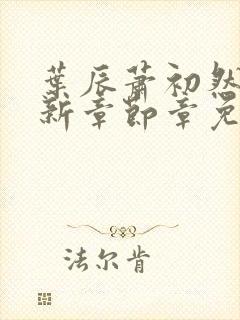 葉辰蕭初然
新章節章免
法尔肯